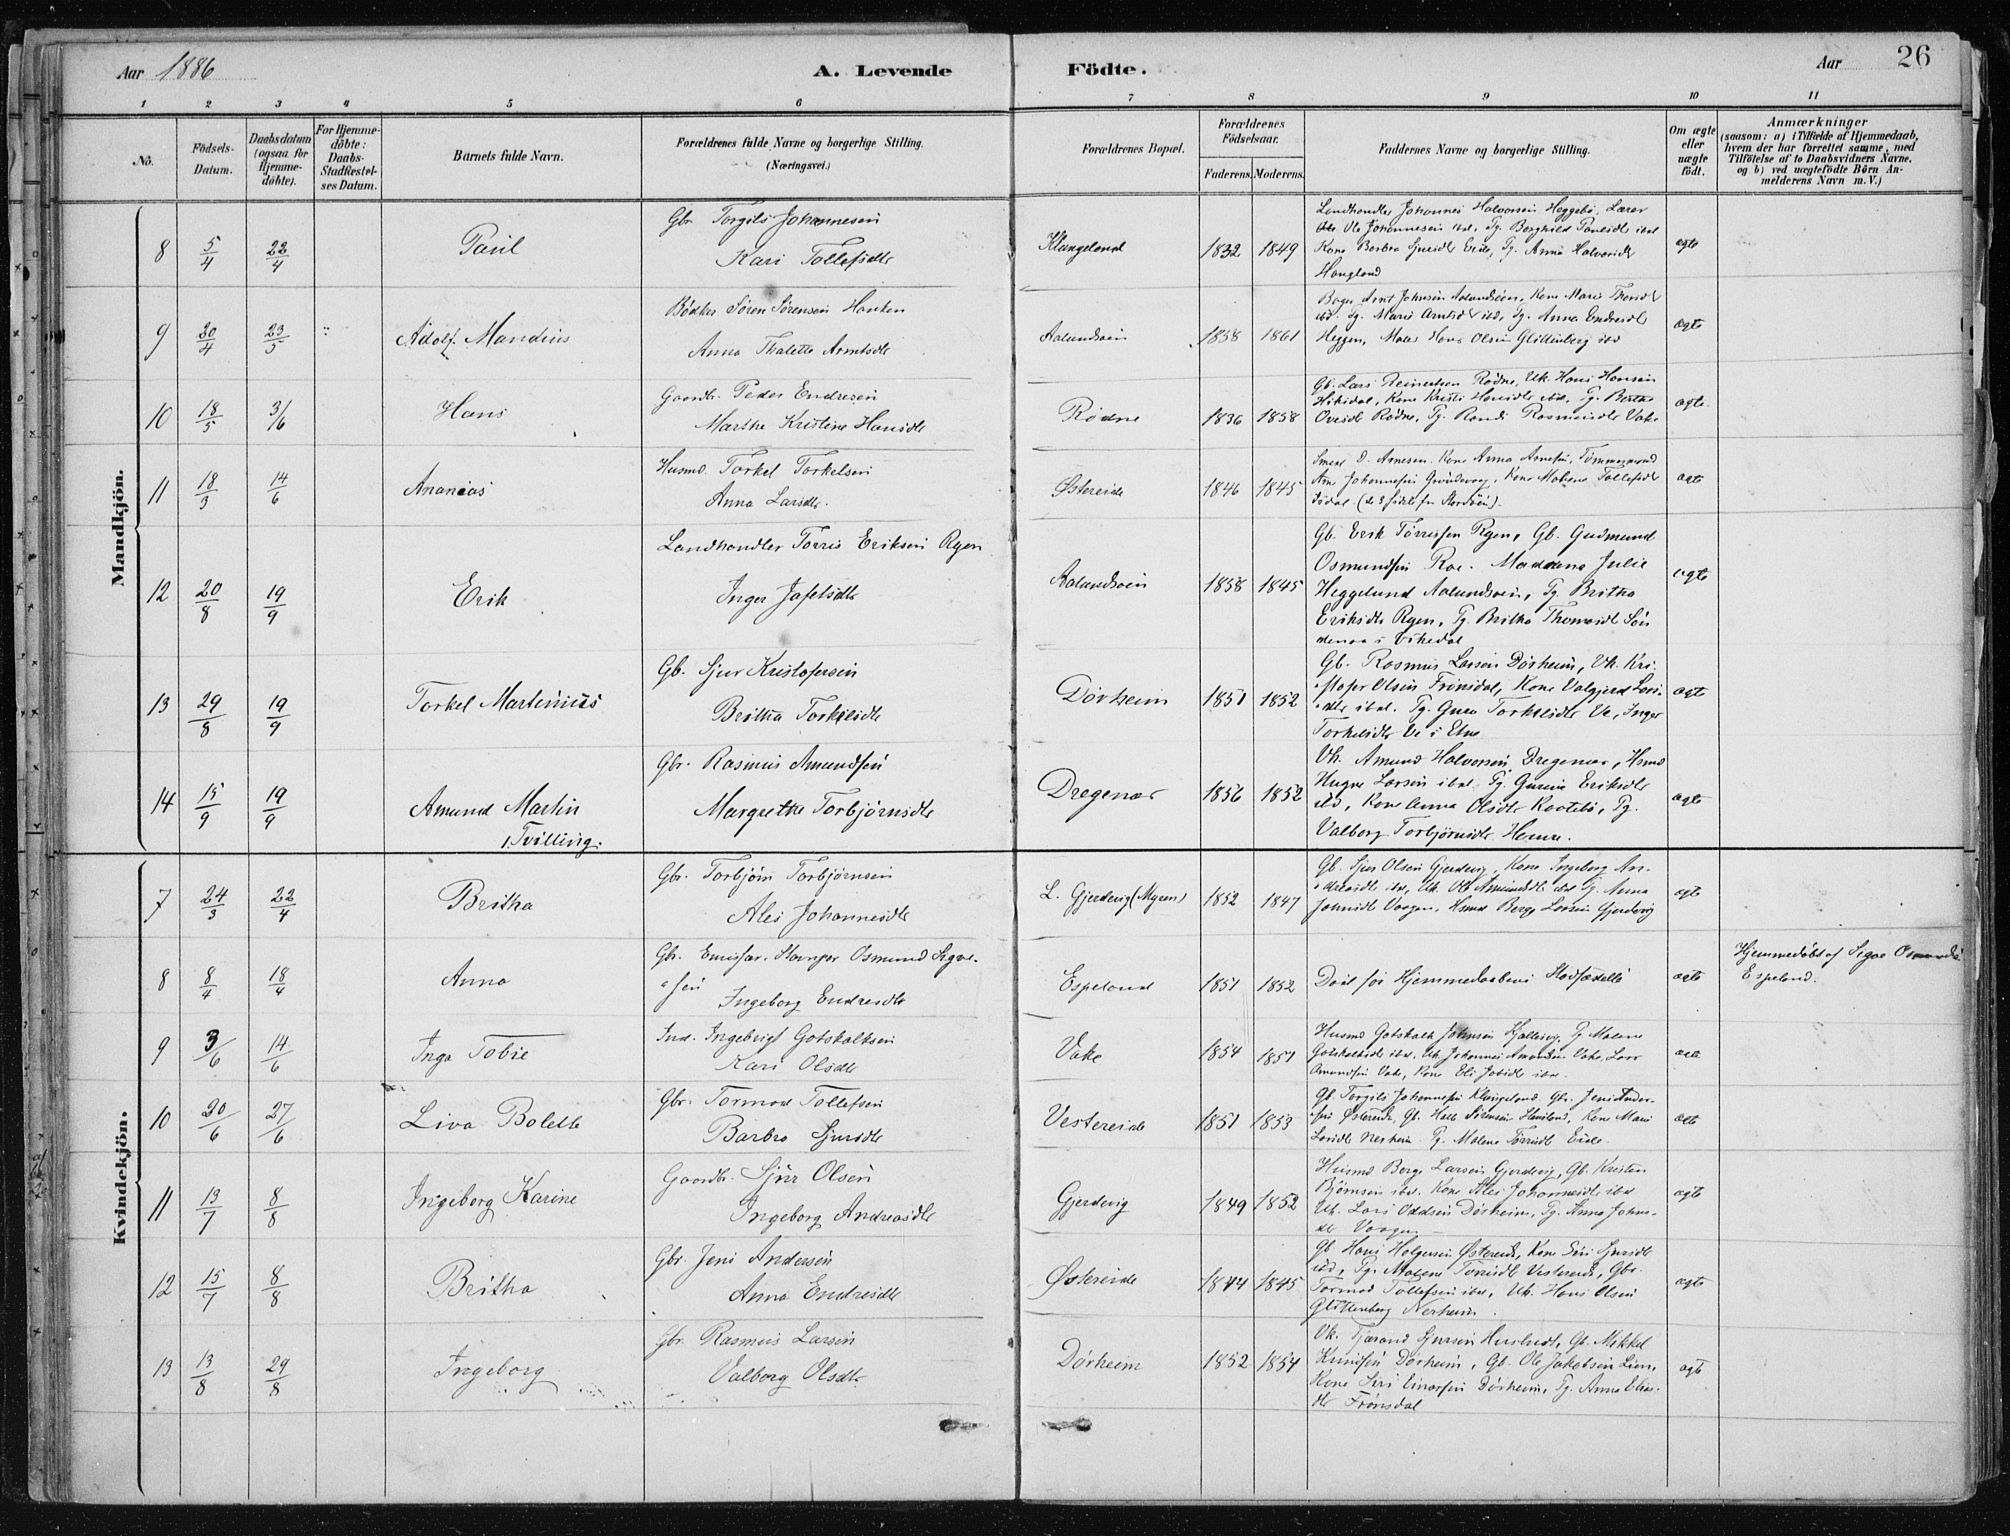 Aar 1886
A. Levende Födte.
Aar
26
1 2 3 4 5 6 7 8 9 10 11
No.
Födsels-Datum.
Daabsdatum (ogsaa for Hjemme-döbte).
For Hjemme-döbte: Daabs-Stadfæstel-ses Datum.
Barnets fulde Navn.
Forældrenes fulde Navne og borgerlige Stilling. (Næringsvei.)
Forældrenes Bopæl.
Forældrenes Födselsaar.
Faderens. Moderens.
Faddernes Navne og borgerlige Stilling.
Om ægte eller uægte födt.
Anmærkninger
(saasom: a) i Tilfælde af Hjemmedaab,
hvem der har forrettet samme, med
Tilföielse af to Daabsvidners Navne,
og b) ved uægtefödte Börn An-
melderens Navn m. V.)
Mandkjön.
8 5/4 22/4 Paul
Gbr. Torgils Johannesen
Kari Tollefsdtr
Klungeland 1832 1849
Landhandler Johannes Halvorsen Heggebø, Lærer
Ole Johannesen ibd, Pg. Borghild Paulsdtr ibd
Kone Barbro Sjursdtr Eide, Pg. Anna Halvorsdtr
Haugland
ægte
9 30/4 23/5 Adolf Mandius
Bødker Søren Sørensen Hanken
Anna Thalette Arntsdtr
Aalundsøen 1858 1861
Bager Arnt Johnsen Aalundsøen, Kone Maria
ibd. Pg. Marie Arntsd ibd, Pg. Anna Endresdtr
Heggen, Maler Hans Olsen Glittenberg ibd
ægte
10 18/5 3/6 Hans
Gaardbr. Peder Endresen
Marthe Kristine Hansdtr
Rødne 1836 1858
Gb. Lars Reinertsen Rødne, Uk. Hans Hansen
Kone Kristi Hansdtr ibd, Pg. Berthe
Rødne, Pg. Randi Rasmusdtr Vake
ægte
11 18/3 14/6 Ananias
Husmd. Torkel Torkelsen
Anna Larsdtr.
Østereide 1846 1845
Arnesen. Kone Anna Arnesen, Tømmermand
Arne Johannesen Kone Malene Tollefsdtr
ægte
12 20/8 19/9 Erik
Landhandler Torris Eriksen Rygen
Inger Jafetsdtr
Aalundsøen 1858 1845
Gb. Erik Tørrissen Rygen, Gb. Gudmund
Osmundsen Roe. Madame Julie
Heggelund Aalundsøen, Pg. Britha
Eriksdtr Rygen, Pg. Britha Thomasdtr Søn
denaa i Vikedal
ægte
13 29/8 19/9 Torkel Martinius
Gb. Sjur Kristofersen
Britha Torkelsdtr
Dørheim 1851 1852
Gb. Rasmus Larsen Dørheim, Uk. Kri-
stofer Olsen Frønsdal, Kone Valgjerd Lars-
dtr ibd. Pg. Guro Torkelsdtr Ve, Inger
Torkelsdtr Ve i Etne
ægte
14 15/9 19/9 Amund Martin
1. Tvilling.
Gbr. Rasmus Amundsen
Margrethe Torbjørnsdtr
Dregenæs 1856 1852
Uk. Amund Halvorsen Dregenæs, Hsmd
Larsen ibd. Pg. Eriksdtr
ibd, Kone Anna Olsdtr Pg.
Valborg Torbjørnsdtr
ægte
Kvindekjön.
7 24/3 22/4 Britha
Gbr. Torbjørn Torbjørnsen
Alis Johannesdtr
L. Gjerdevig (Myren) 1852 1847
Gb. Sjur Olsen Gjerdevig, Kone Ingeborg An-
dreasdtr ibd, Uk. Ole Amundsdtr ibd Pg. Anna
Johnsdtr Vaagen, Hsmd Berge Larsen Gjerdevig
ægte
8 8/4 18/4 Anna
Gbr. Emissær. Osmund Sigve-
sen
Ingeborg Endresdtr
Espeland 1851 1852
Død før Hjemmedaabens Stadfæstelse
ægte
Hjemmedøbt af Sigve Osmundsen
Espeland.
9 3/6 14/6 Inga Tobie
Ind. Ingebrigt Gotskalksen
Kari Olsdtr
Vake 1854 1851
Husmd Gotskalk Johnsen Pg. Malene
Gotskalksdtr ibd, Uk. Johannes Amundsen Vake, Lars
Amundsen Vake, Kone Eli Jobsdtr ibd.
10 20/6 27/6 Liva Bolette
Gbr. Tormod Tollefsen
Barbro Sjursdtr
Vestereide 1851 1853
Gb. Torgils Johannesen Klungeland. Gbr. Jens Ander-
sen Østereide, Gb. Kone Mari
Larsdtr Nerheim. Pg. Malene Tørrisdtr Eide.
11 13/7 8/8 Ingeborg Karine
Gaardbr. Sjur Olsen
Ingeborg Andreasdtr
Gjerdevig 1849 1852
Husmd Berge Larsen Gjerdevig, Gb. Kristen
Bjørnsen ibd. Kone Alis Johannesdtr ibd
Uk. Lars Oddsen Dørheim, Pg. Anna Johns-
dtr Vaagen
ægte
12 15/7 8/8 Britha
Gbr. Jens Andersen
Anna Endresdtr
Østereide 1844 1845
Gb. Hans Holgersen Østereide, Kone Siri Sjursdtr
ibd, Pg. Malene Tørrisdtr Vestereide, Gbr.
Tormod Tollefsen ibd, Uk. Hans Olsen
Glittenberg Nerheim.
ægte
13 13/8 29/8 Ingeborg
Gbr. Rasmus Larsen
Valborg Olsdtr
Dørheim 1852 1854
Uk. Tjerand Sjursen Gb. Mikkel
Knutsen Dørheim, Gb. Ole Jakobsen Lien,
Kone Siri Einarsen Dørheim, Pg. Anna Elias-
dtr Frønsdal
ægte